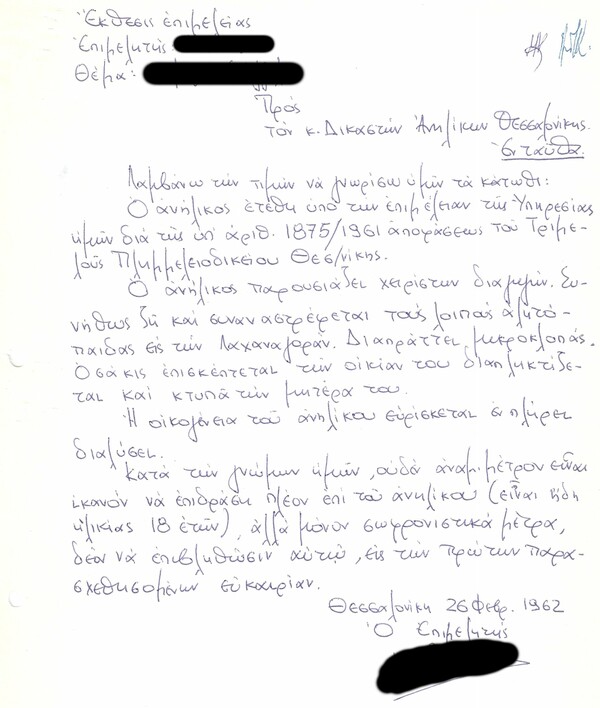 Ἔκθεσις ἐπιμελείας
Ἐπιμελητής:
Θέμα:
Πρός
τόν κ. Δικαστήν Ἀνηλίκων Θεσσαλονίκης.
Ἐνταῦθα.
Λαμβάνω τήν τιμήν νά γνωρίσω ὑμῖν τά κάτωθι:
Ὁ ἀνήλικος ἐτέθη ὑπό τήν ἐπιμέλειαν τῆς Ὑπηρεσίας
ἡμῶν διά τῆς ὑπ' ἀριθ. 1875/1961 ἀποφάσεως τοῦ Τριμε-
λοῦς Πλημμελειοδικείου Θεσ/νίκης.
Ὁ ἀνήλικος παρουσιάζει χειρίστην διαγωγήν. Συ-
νήθως ζῆ καί συναναστρέφεται τούς λοιπούς ἀλητό-
παιδας εἰς τήν Λαχαναγοράν. Διαπράττει μικροκλοπάς.
Ὁσάκις ἐπισκέπτεται τήν οἰκίαν του διαπληκτίζε-
ται καί κτυπᾶ τήν μητέρα του.
Ἡ οἰκογένεια τοῦ ἀνηλίκου εὑρίσκεται ἐν πλήρει
διαλύσει.
Κατά τήν γνώμην ἡμῶν, οὐδέν ἀναμ. μέτρον εἶναι
ἱκανόν νά ἐπιδράση πλέον ἐπί τοῦ ἀνηλίκου (εἶναι ἤδη
ἡλικίας 18 ἐτῶν), ἀλλά μόνον σωφρονιστικά μέτρα,
δέον νά ἐπιβληθῶσιν αὐτῷ, εἰς τήν πρώτην παρα-
σχεθησομένην εὐκαιρίαν.
Θεσσαλονίκη 26 Φεβρ. 1962
Ὁ Ἐπιμελητής